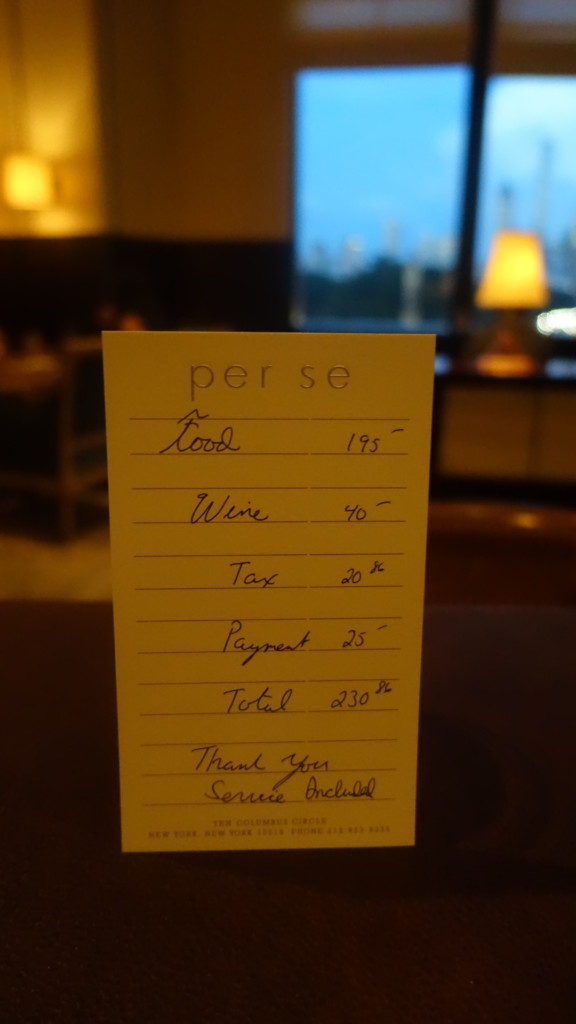 per se
Food 195-
Wine 40-
Tax 20 86
Payment 25-
Total 230 86
Thank You
Service Included
TEN COLUMBUS CIRCLE
NEW YORK, NEW YORK 10019 PHONE